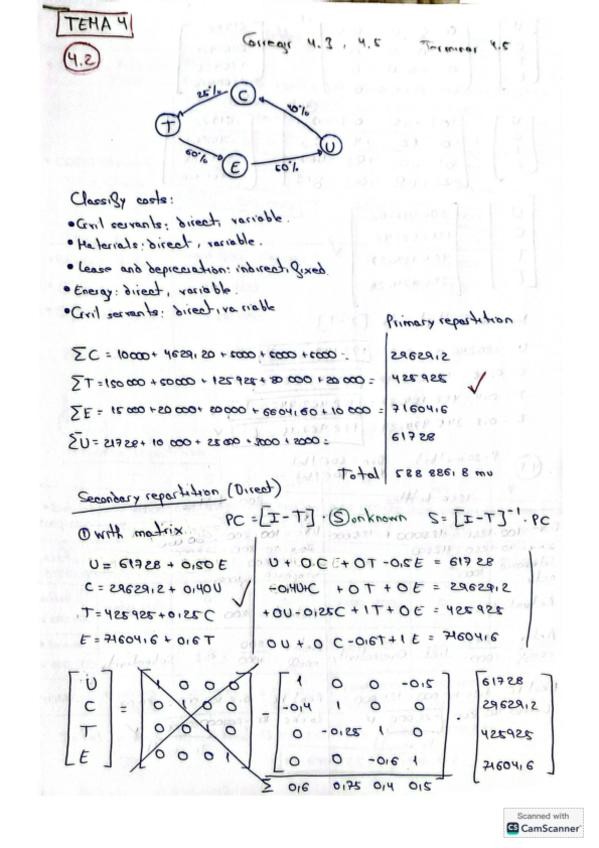 TEMA 4
Corregir 4.3, 4.5 Terminar 4.5
4.2
25% C 40%
T U
60% E 50%
Classify costs:
• Civil servants: direct, variable.
• Materials: direct, variable.
• Lease and depreciation: indirect, fixed.
• Energy: direct, variable.
• Civil servants: direct, variable
Primary repartition
ΣC = 10000 + 4629,20 + 5000 + 5000 + 5000 = 29629,2
ΣT = 150 000 + 50000 + 125925 + 80 000 + 20 000 = 425 925 ✓
ΣE = 15 000 + 20 000 + 20000 + 6604,60 + 10 000 = 71604,6
ΣU = 21728 + 10 000 + 25 000 + 3000 + 2000 = 61728
Total 588 886,8 mu
Secondary repartition (Direct)
① with matrix. PC = [I-T] · Ⓢ unknown S = [I-T]⁻¹ · PC
U = 61728 + 0,50 E U + 0C + 0T - 0,5E = 61728
C = 29629,2 + 0,40U ✓ -0,4U + C + 0T + 0E = 29629,2
T = 425925 + 0,25C +0U - 0,25C + 1T + 0E = 425925
E = 71604,6 + 0,6T 0U + 0C - 0,6T + 1E = 71604,6
U 1 0 0 0 1 0 0 -0,5 61728
C = 0 1 0 0 = -0,4 1 0 0 · 29629,2
T 0 0 1 0 0 -0,25 1 0 425925
E 0 0 0 1 0 0 -0,6 1 71604,6
Σ 0,6 0,75 0,4 0,5
Scanned with
CS CamScanner